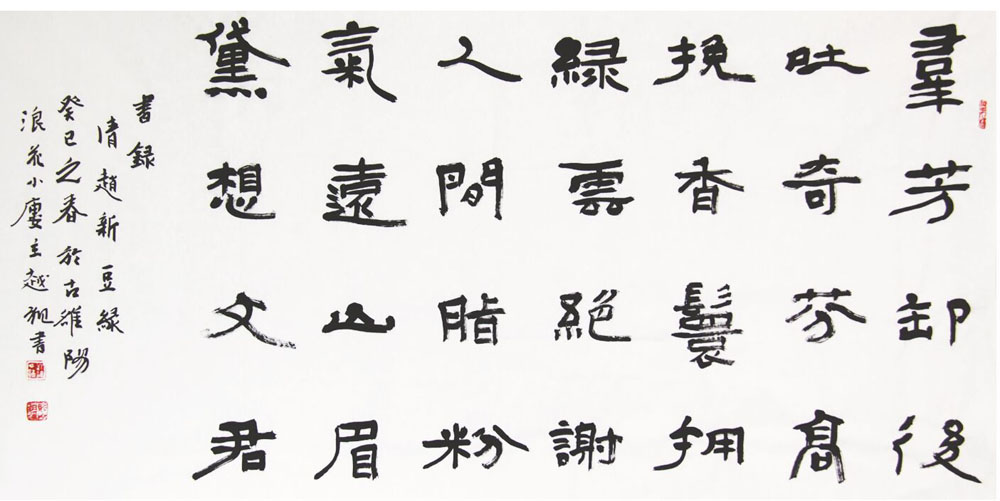 羣芳卸後
吐奇芬髙
挽香鬟拥
綠雲絕謝
人間脂粉
氣遠山眉
黛想文君
書録
清趙新豆綠
癸巳之春於古雒陽
浪花小廔主越狮書